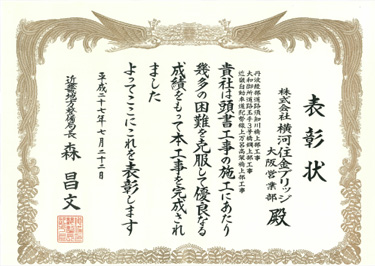 表彰状
株式会社 横河住金ブリッジ
大阪営業部 殿
丹波綾部道路須知川橋上部工事
大和御所道路
近畿自動車道紀勢線上万呂高架橋上部工事
貴社は頭書工事の施工にあたり
幾多の困難を克服して優良なる
成績をもって本工事を完成され
ました
よってここにこれを表彰します
平成二十七年七月二十三日
近畿地方整備局長 森 昌文